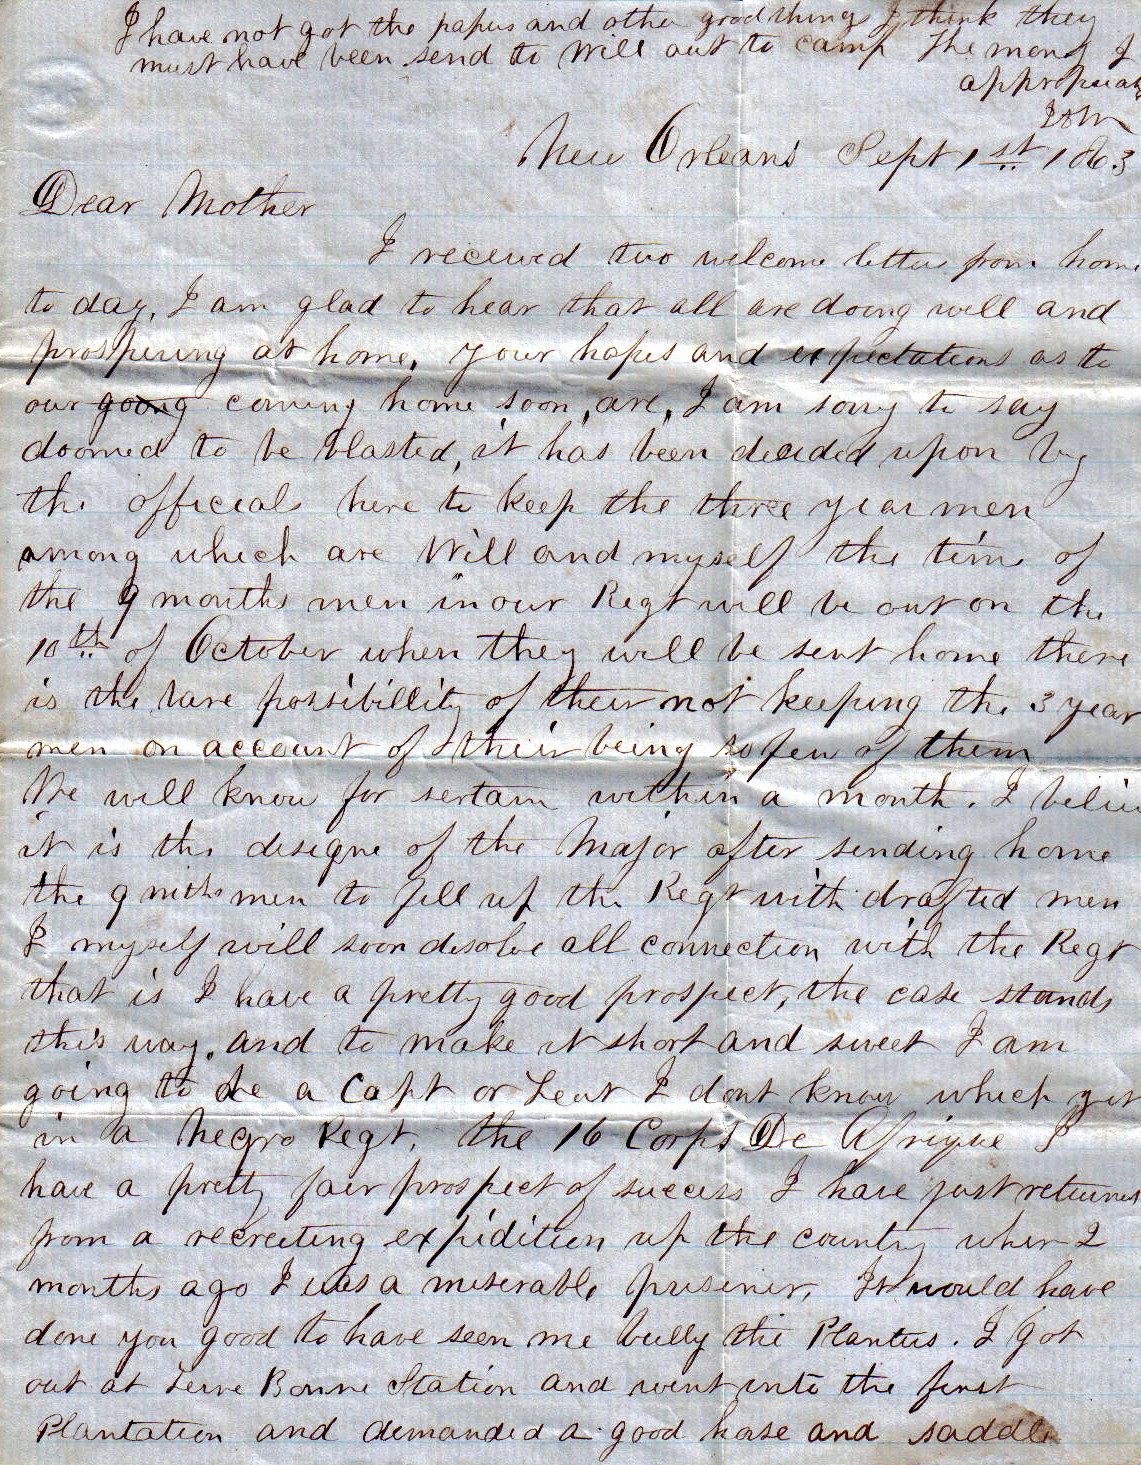 I have not got the papers and other good things I think they
must have been send to Will out to camp The money I
appropriate
New Orleans Sept 1st 1863
Dear Mother
I received two welcome letters from home
to day, I am glad to hear that all are doing well and
prospering at home, your hopes and expectations as to
our going coming home soon, are, I am sorry to say
doomed to be blasted, it has been decided upon by
the officials here to keep the three year men
among which are Will and myself the time of
the 9 months men in our Regt will be out on the
10th of October when they will be sent home there
is the bare possibillity of their not keeping the 3 year
men on account of their being so few of them
We will know for sertain within a month. I believe
it is the designe of the Major after sending home
the 9 mths men to fill up the Regt with drafted men
I myself will soon desolve all connection with the Regt
that is I have a pretty good prospect, the case stands
this way, and to make it short and sweet I am
going to be a Capt or Leut I dont know which yet
in a Negro Regt, the 16 Corps De Afrique I
have a pretty fair prospect of success I have just returned
from a recreeting expidition up the country wher 2
months ago I was a miserable prisener, It would have
done you good to have seen me bully the Planters. I got
out at Terre Bonne Station and went into the first
Plantation and demanded a good hose and saddle